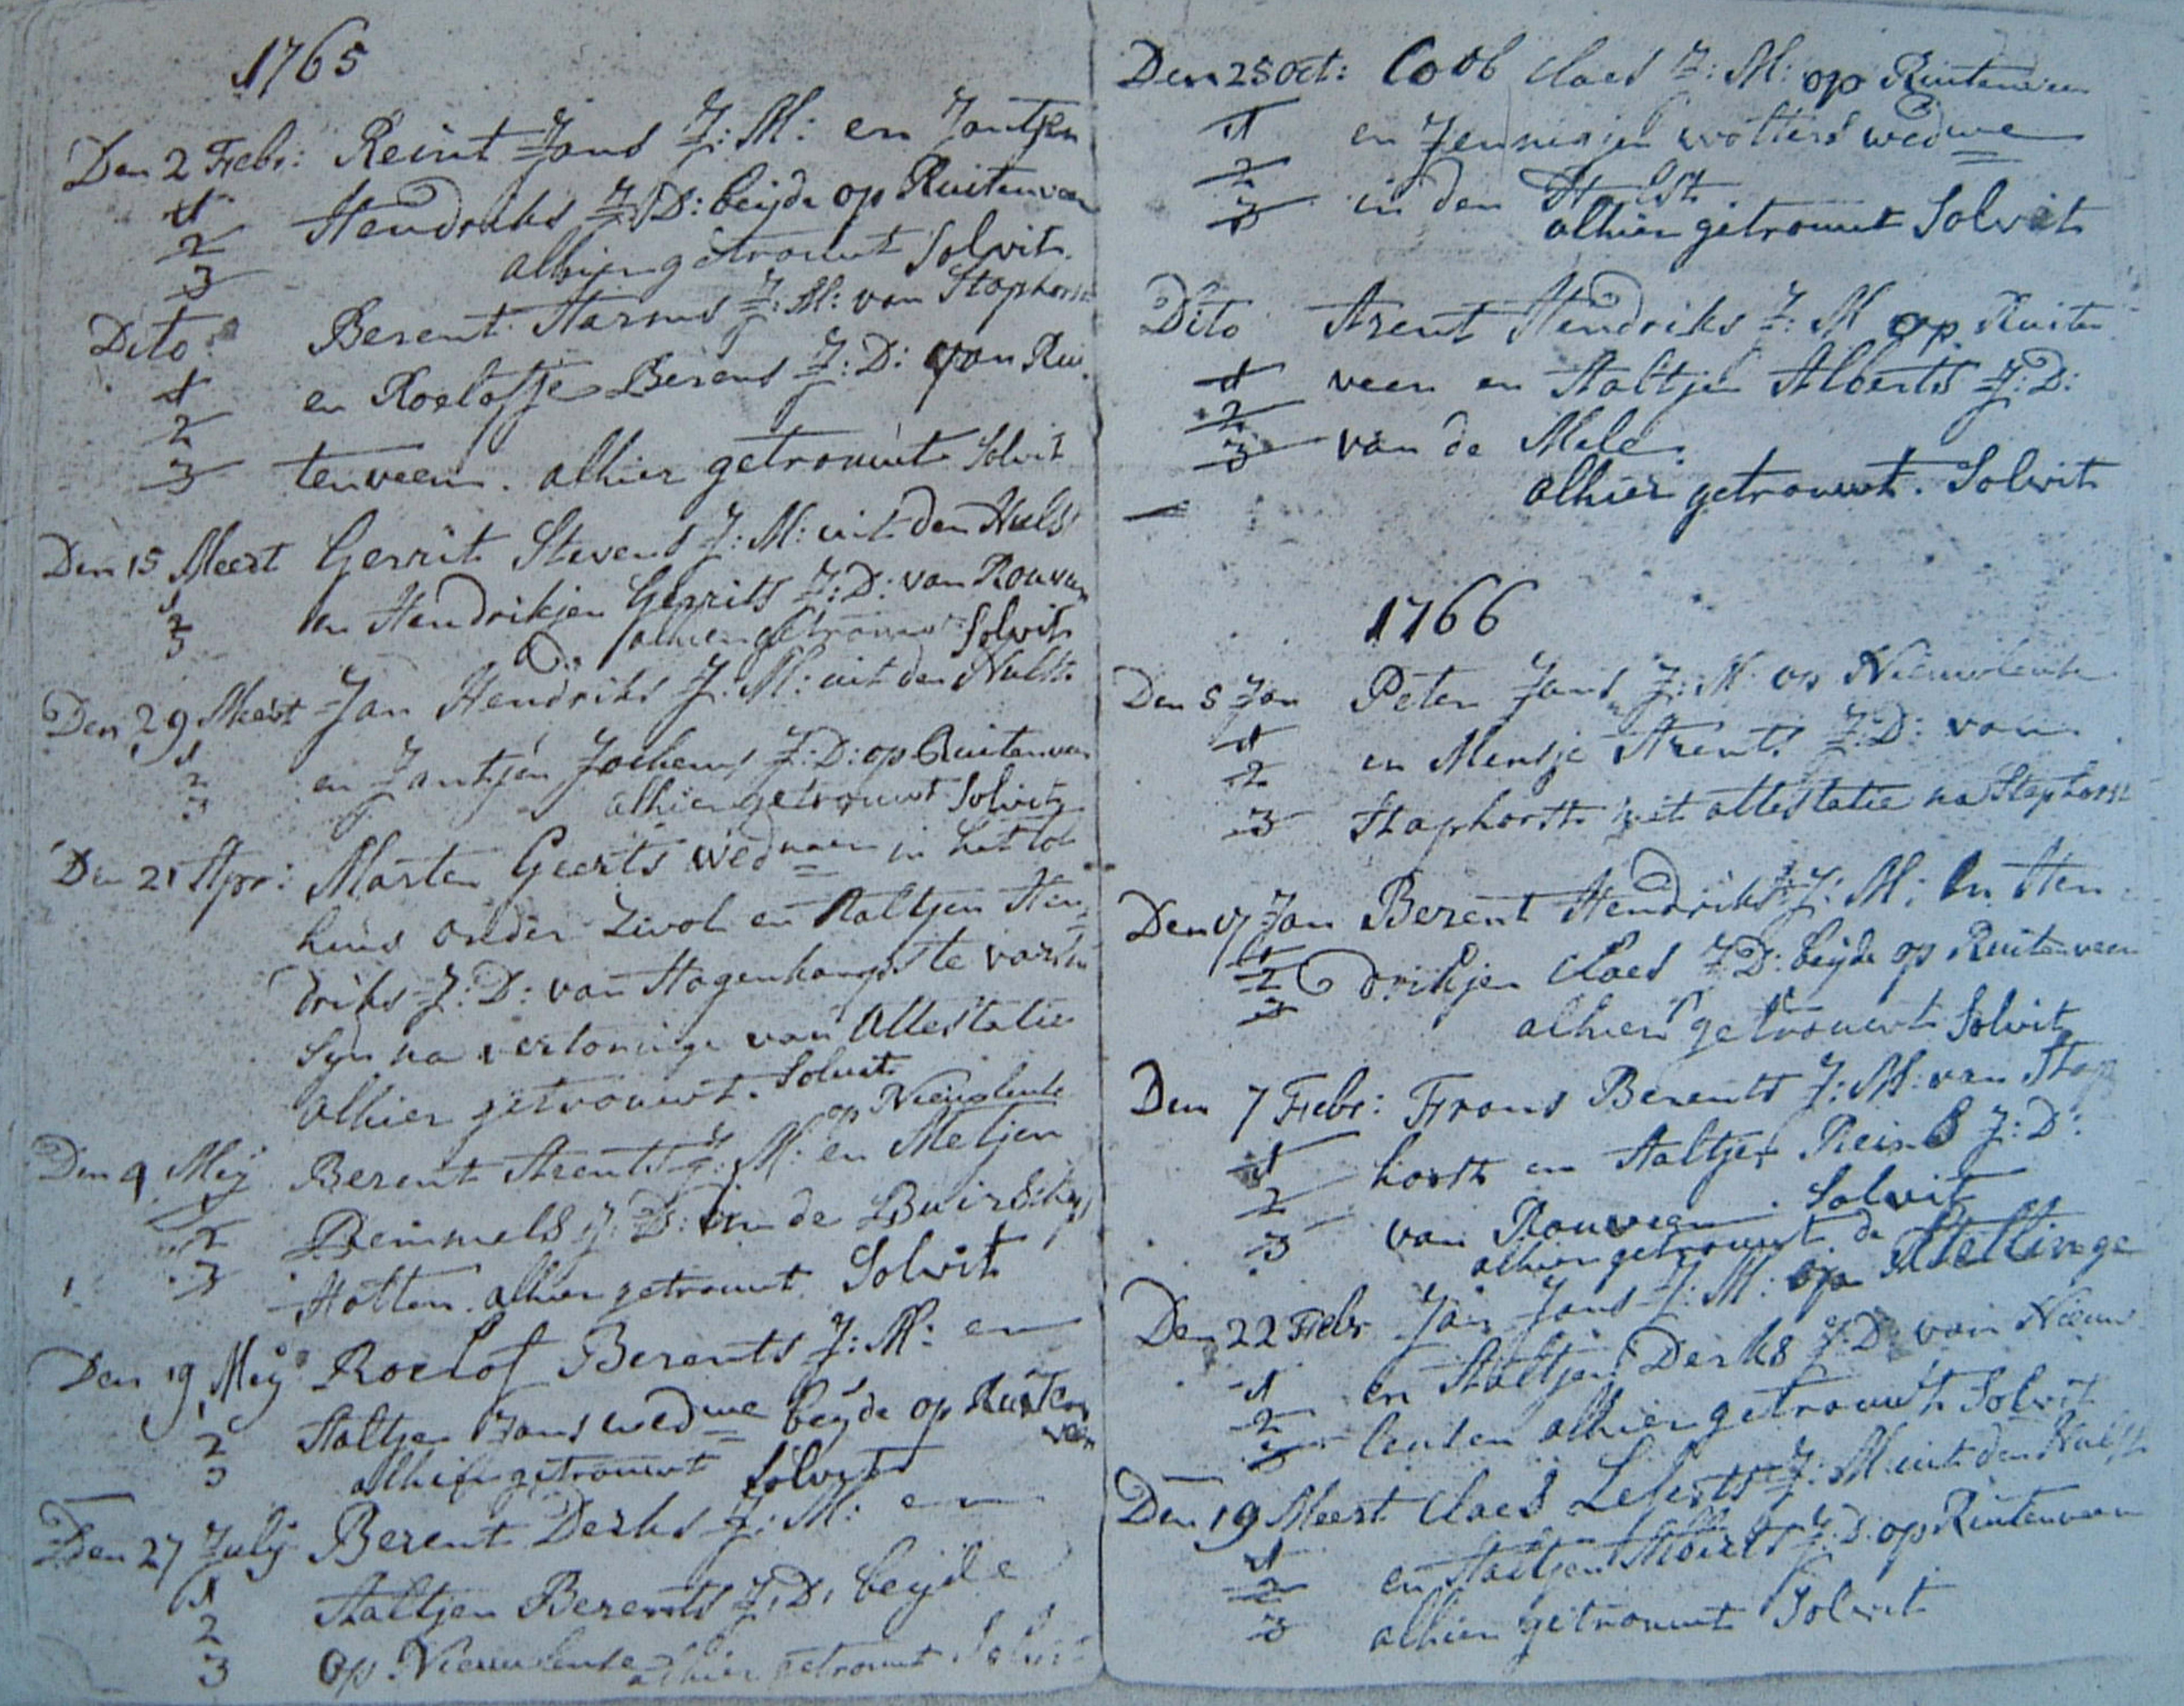 1765
Den 2 Febr: Reint Jans J: M: en Jantjen
1 Hendriks J: D: beijde op Ruitenveen
2 alhier getrouwt Solvit
3
Dito: Berent Harms J: M: van Staphorst
1 en Roelofje Berens J: D: van Rui
2
3 tenveen. alhier getrouwt Solvit
Den 15 Meert Gerrit Stevens J: M: uit den Hulst
1 en Hendrikjen Gerrits J: D: van Rouveen
2 alhier getrouwt Solvit
3
Den 29 Meert Jan Hendriks J: M: uit den Hulst
1 en Jantjen Jochems J: D: op Ruitenveen
2 alhier getrouwt Solvit
3
Den 21 Apr: Marten Geerts wednaar in het tol
huis onder Zwol en Aaltjen Hen
driks J: D: van
Syn na vertoninge van Attestatie
alhier getrouwt. Solvit
op Nieuwleute
Den 9 Mey Berent Arents J: M: en Metjen
1
2 Remmels J: D: in de Buirschap
3 Holten. alhier getrouwt Solvit
Den 19 Mey Roelof Berents J: M: en
1
2 Aaltjen Jans wedwe beyde op Ruiten
veen
3 alhier getrouwt Solvit
Den 27 July Berent Derks J: M: en
1 Aaltjen Berents J: D: beyde
2
3 op Nieuwleute alhier getrouwt Solvit
Den 25 Oct: Coob Claes J: M: op Ruitenveen
1 en Jennigjen Wolters wedwe
2
3 in den Hulst.
alhier getrouwt Solvit
Dito Arent Hendriks J: M op Ruiten
1 veen en Aaltjen Alberts J: D:
2
3 van de Mele.
alhier getrouwt. Solvit
1766
Den 5 Jan Peter Jans J: M: op Nieuwleute
1 en Mensje Arents J: D: van
2
3 Staphorst met attestatie na Staphorst
Den 17 Jan Berent Hendriks J: M: en Hen
1
2 drikjen Claes J: D: beyde op Ruitenveen
3 alhier getrouwt Solvit
Den 7 Febr: Frans Berents J: M: van Stap
1 horst en Aaltjen Reins J: D:
2
3 van Rouveen. Solvit
alhier getrouwt
Den 22 Febr Jan Jans J: M: op de Stellinge
1 en Aaltjen Derks J: D: van Nieuw
2
3 leuten alhier getrouwt Solvit
Den 19 Meert Claes J: M: uit den Hulst
1
2 en Aaltjen J: D: op Ruitenveen
3 alhier getrouwt Solvit